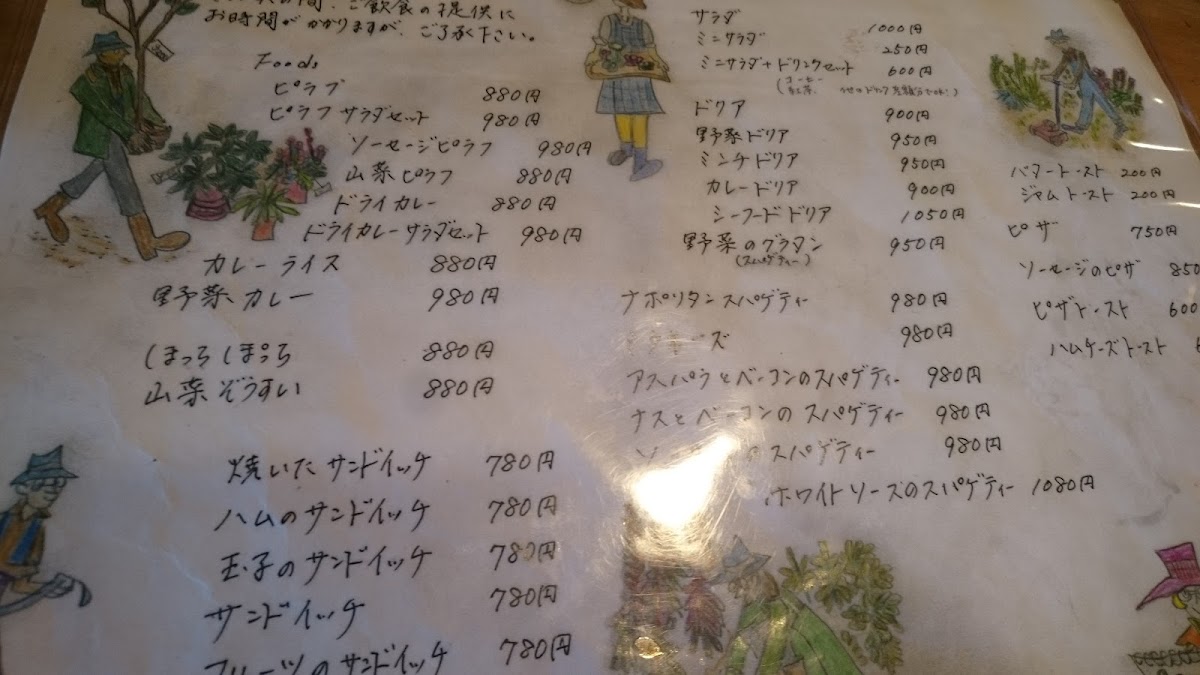 ご飲食の提供に
お時間がかかりますが、ご了承下さい。
Foods
ピラフ 880円
ピラフサラダセット 980円
ソーセージピラフ 980円
山菜ピラフ 880円
ドライカレー 880円
ドライカレーサラダセット 980円
カレーライス 880円
野菜カレー 980円
880円
山菜ぞうすい 880円
焼いたサンドイッチ 780円
ハムのサンドイッチ 780円
玉子のサンドイッチ 780円
サンドイッチ 780円
フルーツのサンドイッチ 780円
サラダ 1000円
ミニサラダ 250円
ミニサラダ+ドリンクセット 600円
(コーヒー
紅茶
ドリア 900円
野菜ドリア 950円
ミンチドリア 950円
カレードリア 900円
シーフードドリア 1050円
野菜のグラタン 950円
(スパゲティー)
ナポリタンスパゲティー 980円
980円
アスパラとベーコンのスパゲティー 980円
ナスとベーコンのスパゲティー 980円
スパゲティー 980円
ホワイトソースのスパゲティー 1080円
バタートースト 200円
ジャムトースト 200円
ピザ 750円
ソーセージのピザ 850
ピザトースト 600
ハムチーズトースト